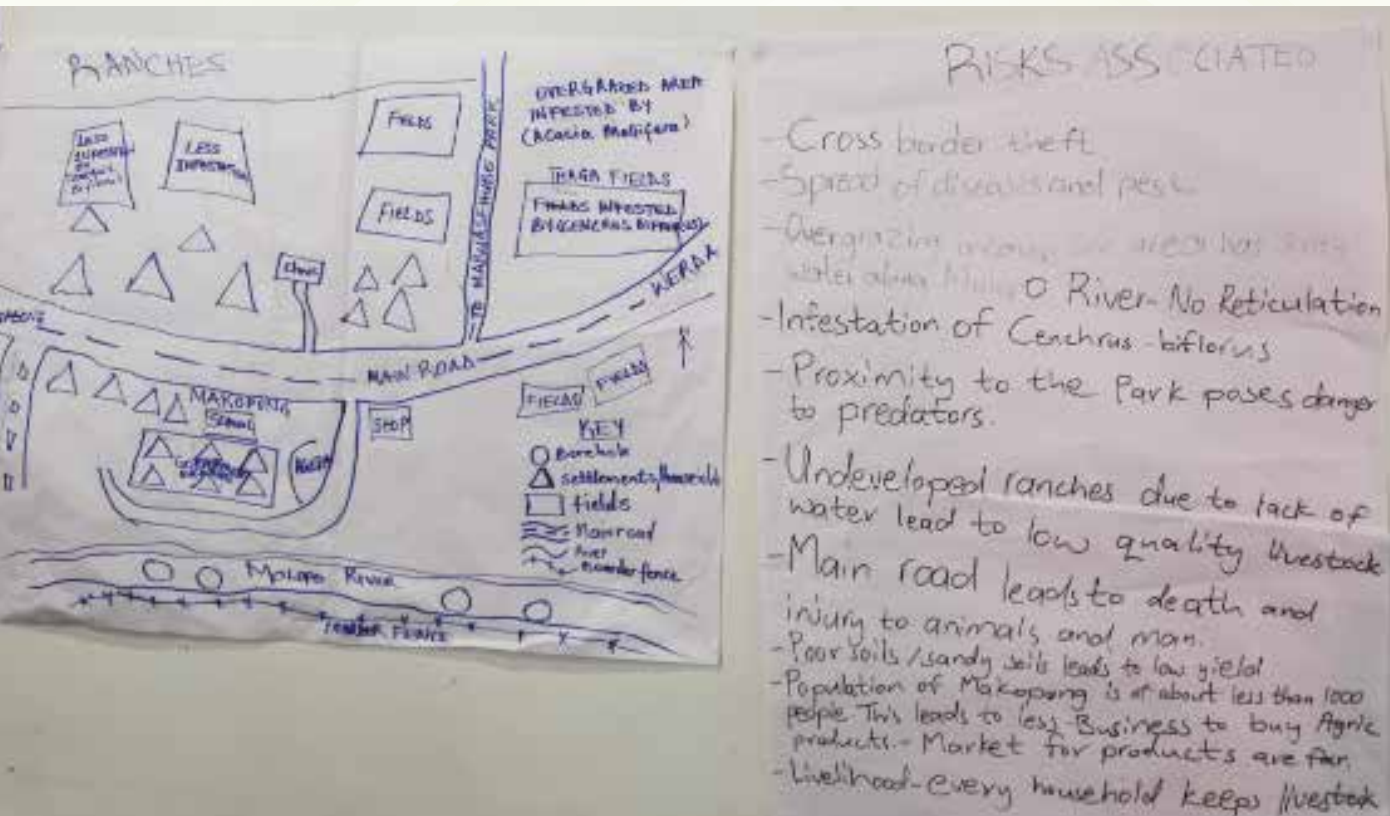 RANCHES
LESS
INFESTATION
FIELDS
FIELDS
OVERGRAZED AREA
INFESTED BY
(Acacia Mellifera)
FIELDS
FIELDS INFESTED
BY (CENCRUS
WERDA
MAIN ROAD
MAKOPONG
SHOP
FIELDS
FIELDS
KEY
Borehole
settlements/
fields
Main road
River
fence
MOLOPO RIVER
RISKS ASSOCIATED
- Cross border theft
- Spread of diseases and pest
- Overgrazing areas has
water along
O River - No Reticulation
- Infestation of Cenchrus - biflorus
- Proximity to the Park poses danger
to predators.
- Undeveloped ranches due to lack of
water lead to low quality livestock
- Main road leads to death and
injury to animals and man.
- Poor soils / sandy soils leads to low yield
- Population of Makopong is at about less than 1000
people. This leads to less Business to buy Agric
products. - Market for products are far.
- Livelihood - every household keeps livestock